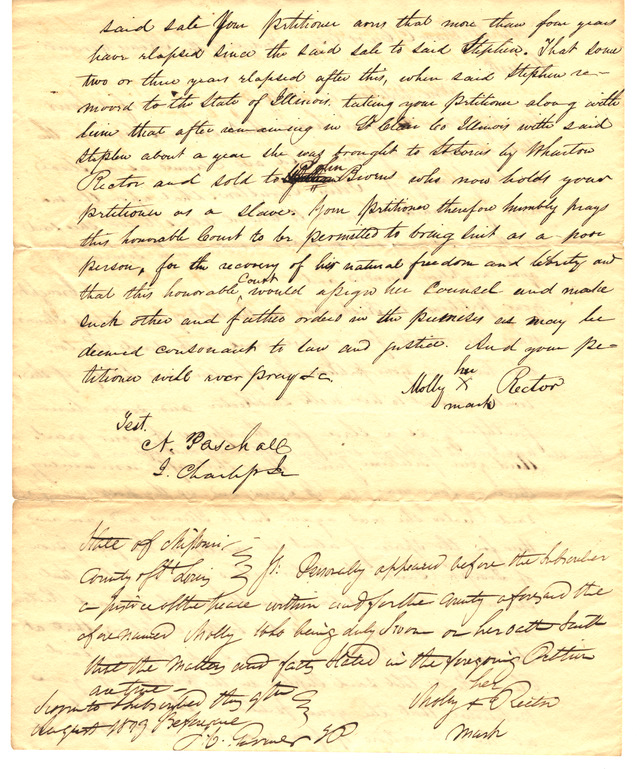 said sale Your Petitioner avers that more than four years
have elapsed since the said sale to said Stephen. That some
two or three years elapsed after this, when said Stephen re-
moved to the State of Illinois. taking your Petitioner along with
him that after remaining in St Clair Co Illinois with said
Stephen about a year she was brought to St Louis by Wharton
Rector and sold to John Bivens who now holds your
petitioner as a slave. Your Petitioner therefore humbly prays
this honorable Court to be permitted to bring suit as a poor
person, for the recovery of his natural freedom and liberty and
that this honorable Court would assign her Counsel and make
such other and further orders in the premises as may be
deemed consonant to law and justice. And your pe-
titioner will ever pray &c.
Molly her X mark Rector
Test.
A. Paschall
State of Missouri
County of St Louis Ss. Personally appeared before the subscriber
a Justice of the peace within and for the County aforesaid the
afore named Molly who being duly Sworn on her oath Saith
that the Matters and facts stated in the foregoing Petition
are true -
Sworn to & subscribed this 9th
August 1829 before me
Molly her X Rector
mark
JP